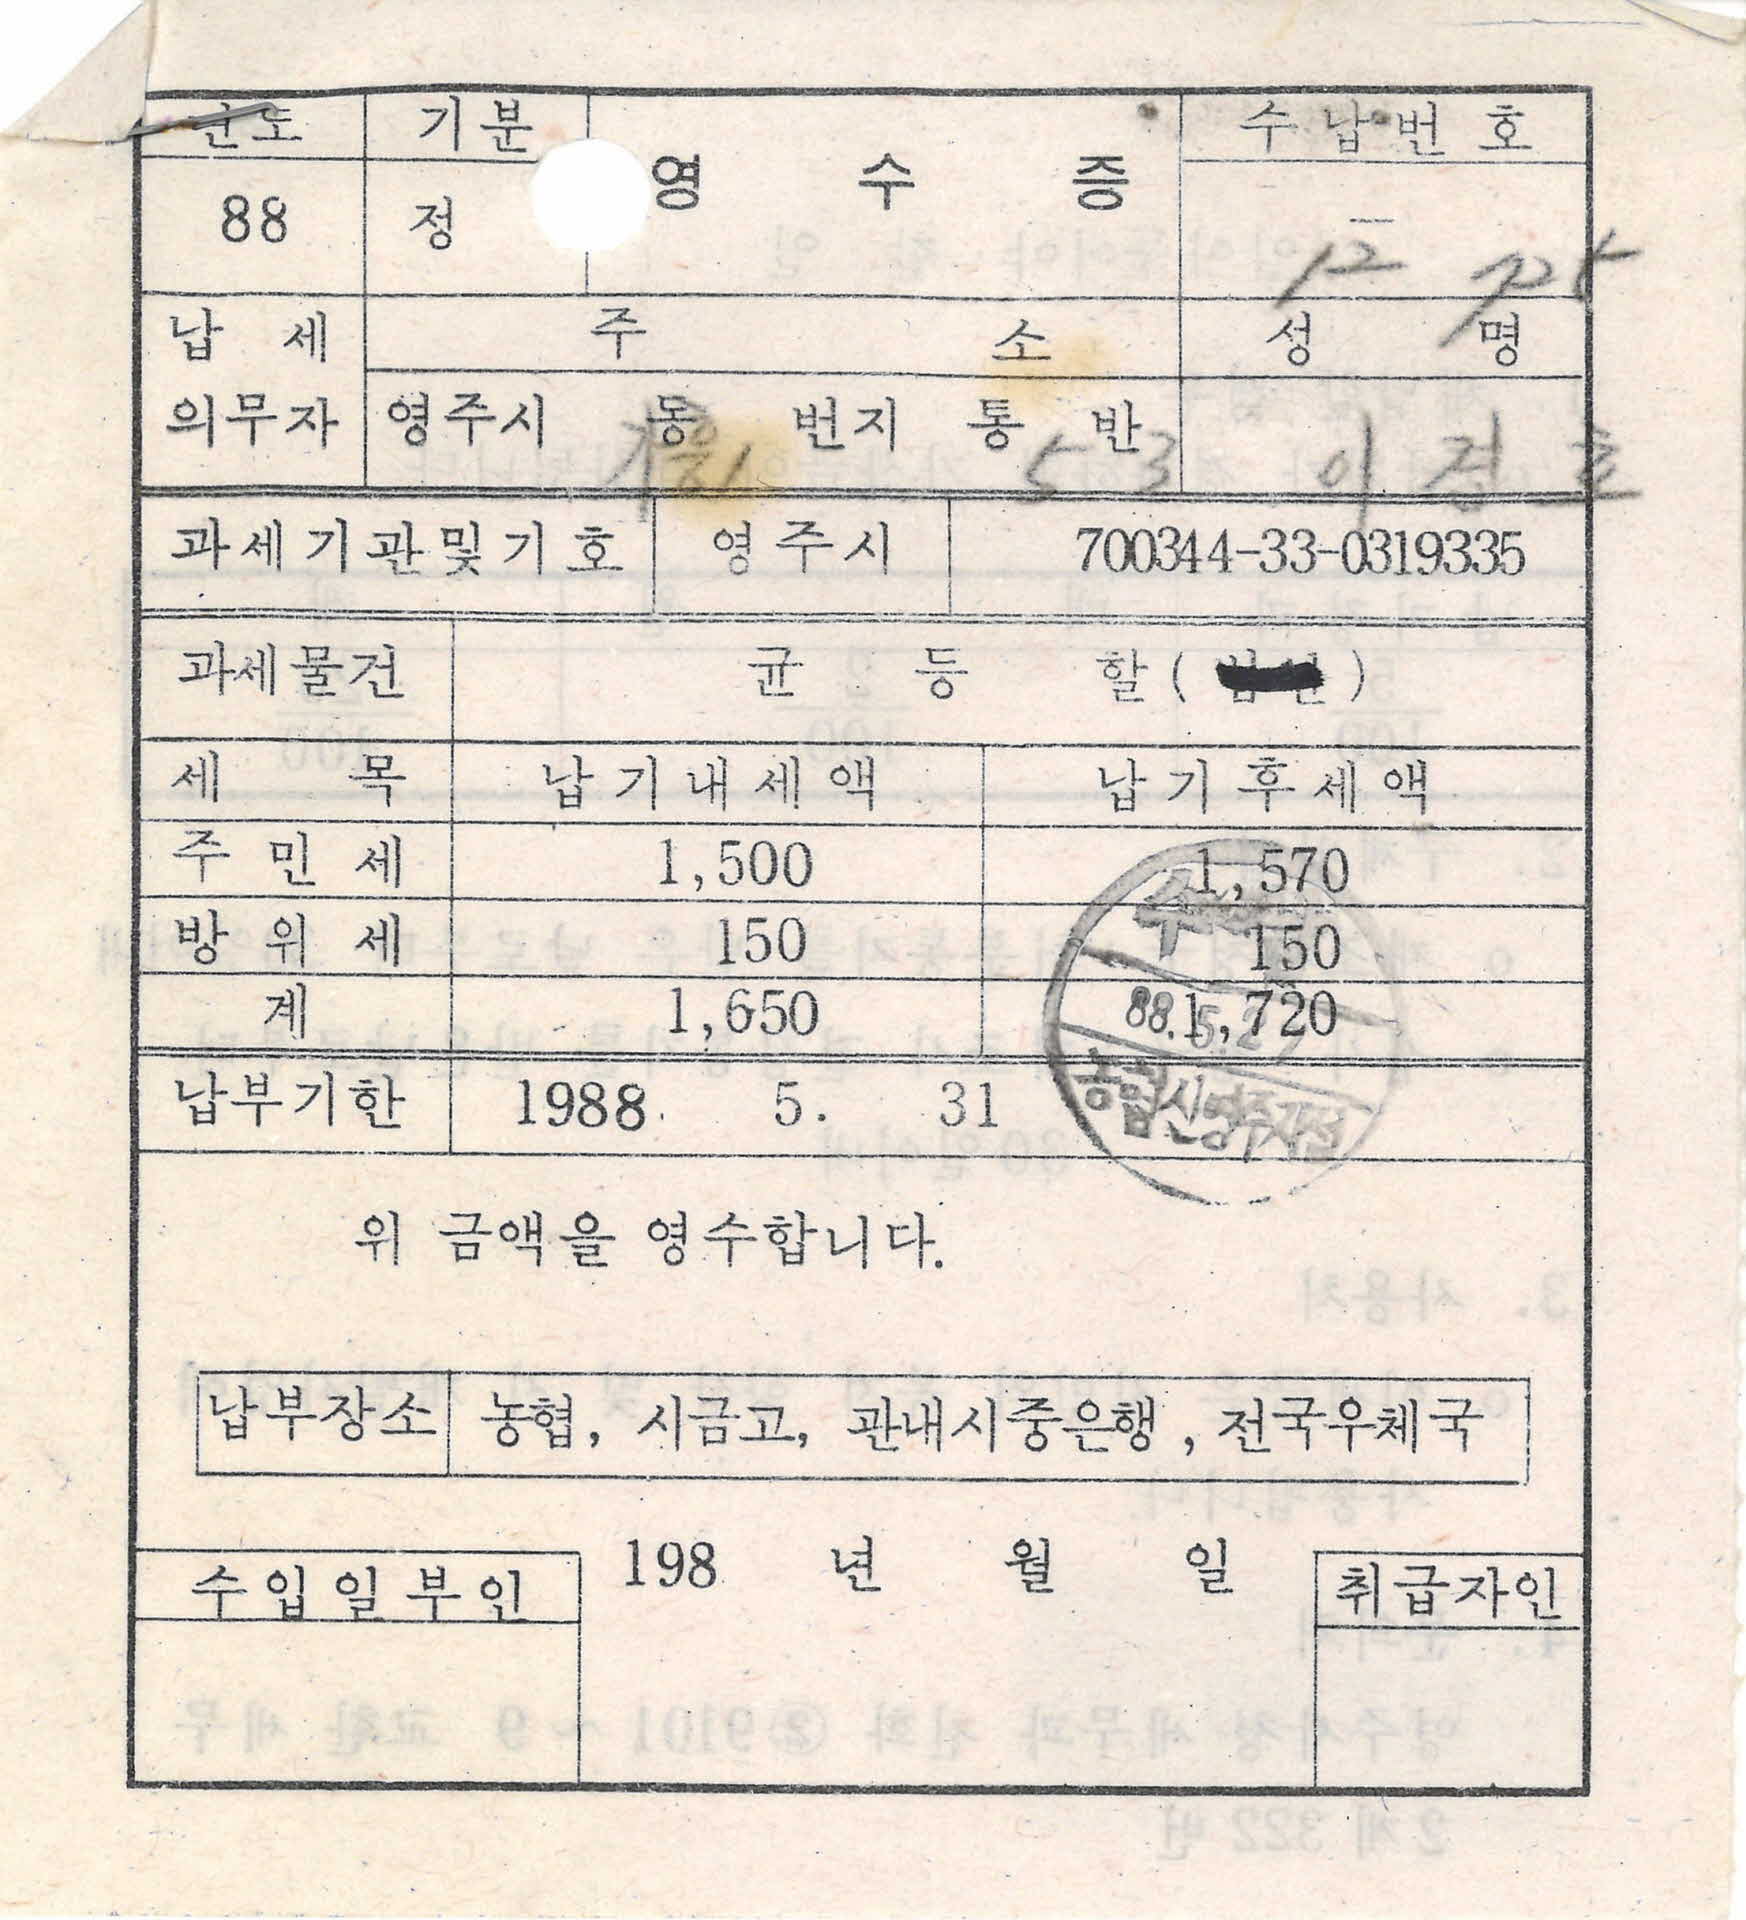 년도 기분 영 수 증 수납번호
88 정 —
12
납 세 주 소 성 명
의무자 영주시 동 번지 통 반
가흥1 5 3 이경호
과세기관및기호 영주시 700344-33-0319335
과세물건 균 등 할( )
세 목 납기내세액 납기후세액
주 민 세 1,500 1,570
방 위 세 150 150
계 1,650 1,720
수
88.5.2
농협신영주
납부기한 1988. 5. 31
위 금액을 영수합니다.
납부장소 농협, 시금고, 관내시중은행, 전국우체국
198 년 월 일
수입일부인 취급자인